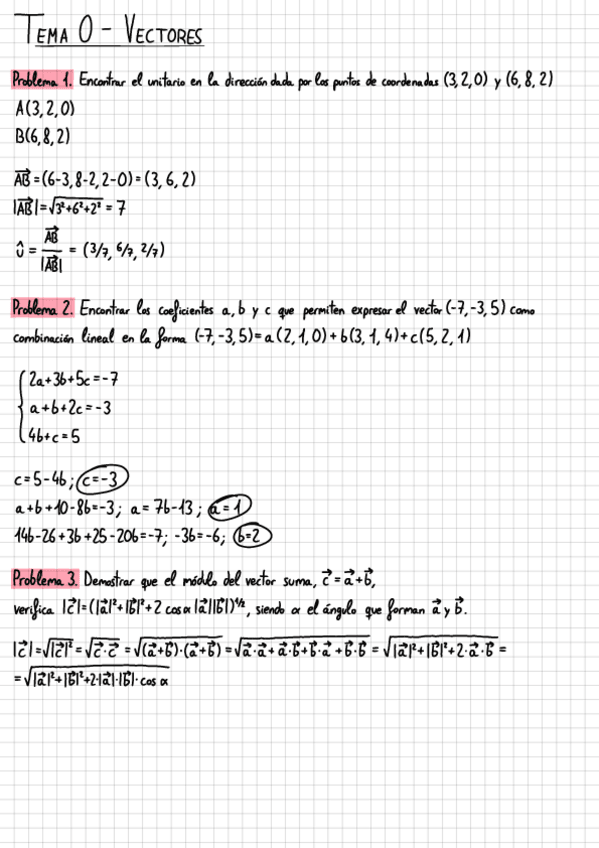 TEMA 0 - VECTORES
Problema 1. Encontrar el unitario en la dirección dada por los puntos de coordenadas (3,2,0) y (6,8,2)
A(3,2,0)
B(6,8,2)
A͞B⃗ = (6-3, 8-2, 2-0) = (3, 6, 2)
|AB⃗| = √3²+6²+2² = 7
û = AB⃗ / |AB⃗| = (3/7, 6/7, 2/7)
Problema 2. Encontrar los coeficientes a, b y c que permiten expresar el vector (-7,-3,5) como
combinación lineal en la forma (-7,-3,5)=a(2,1,0)+b(3,1,4)+c(5,2,1)
2a+3b+5c=-7
a+b+2c=-3
4b+c=5
c=5-4b; c=-3
a+b+10-8b=-3; a=7b-13; a=1
14b-26+3b+25-20b=-7; -3b=-6; b=2
Problema 3. Demostrar que el módulo del vector suma, c⃗=a⃗+b⃗,
verifica |c⃗|=(|a⃗|²+|b⃗|²+2 cos α |a⃗||b⃗|)^1/2, siendo α el ángulo que forman a⃗ y b⃗.
|c⃗|=√|c⃗|² = √c⃗·c⃗ = √(a⃗+b⃗)·(a⃗+b⃗) = √a⃗·a⃗+a⃗·b⃗+b⃗·a⃗+b⃗·b⃗ = √|a⃗|²+|b⃗|²+2·a⃗·b⃗ =
=√|a⃗|²+|b⃗|²+2·|a⃗|·|b⃗|·cos α